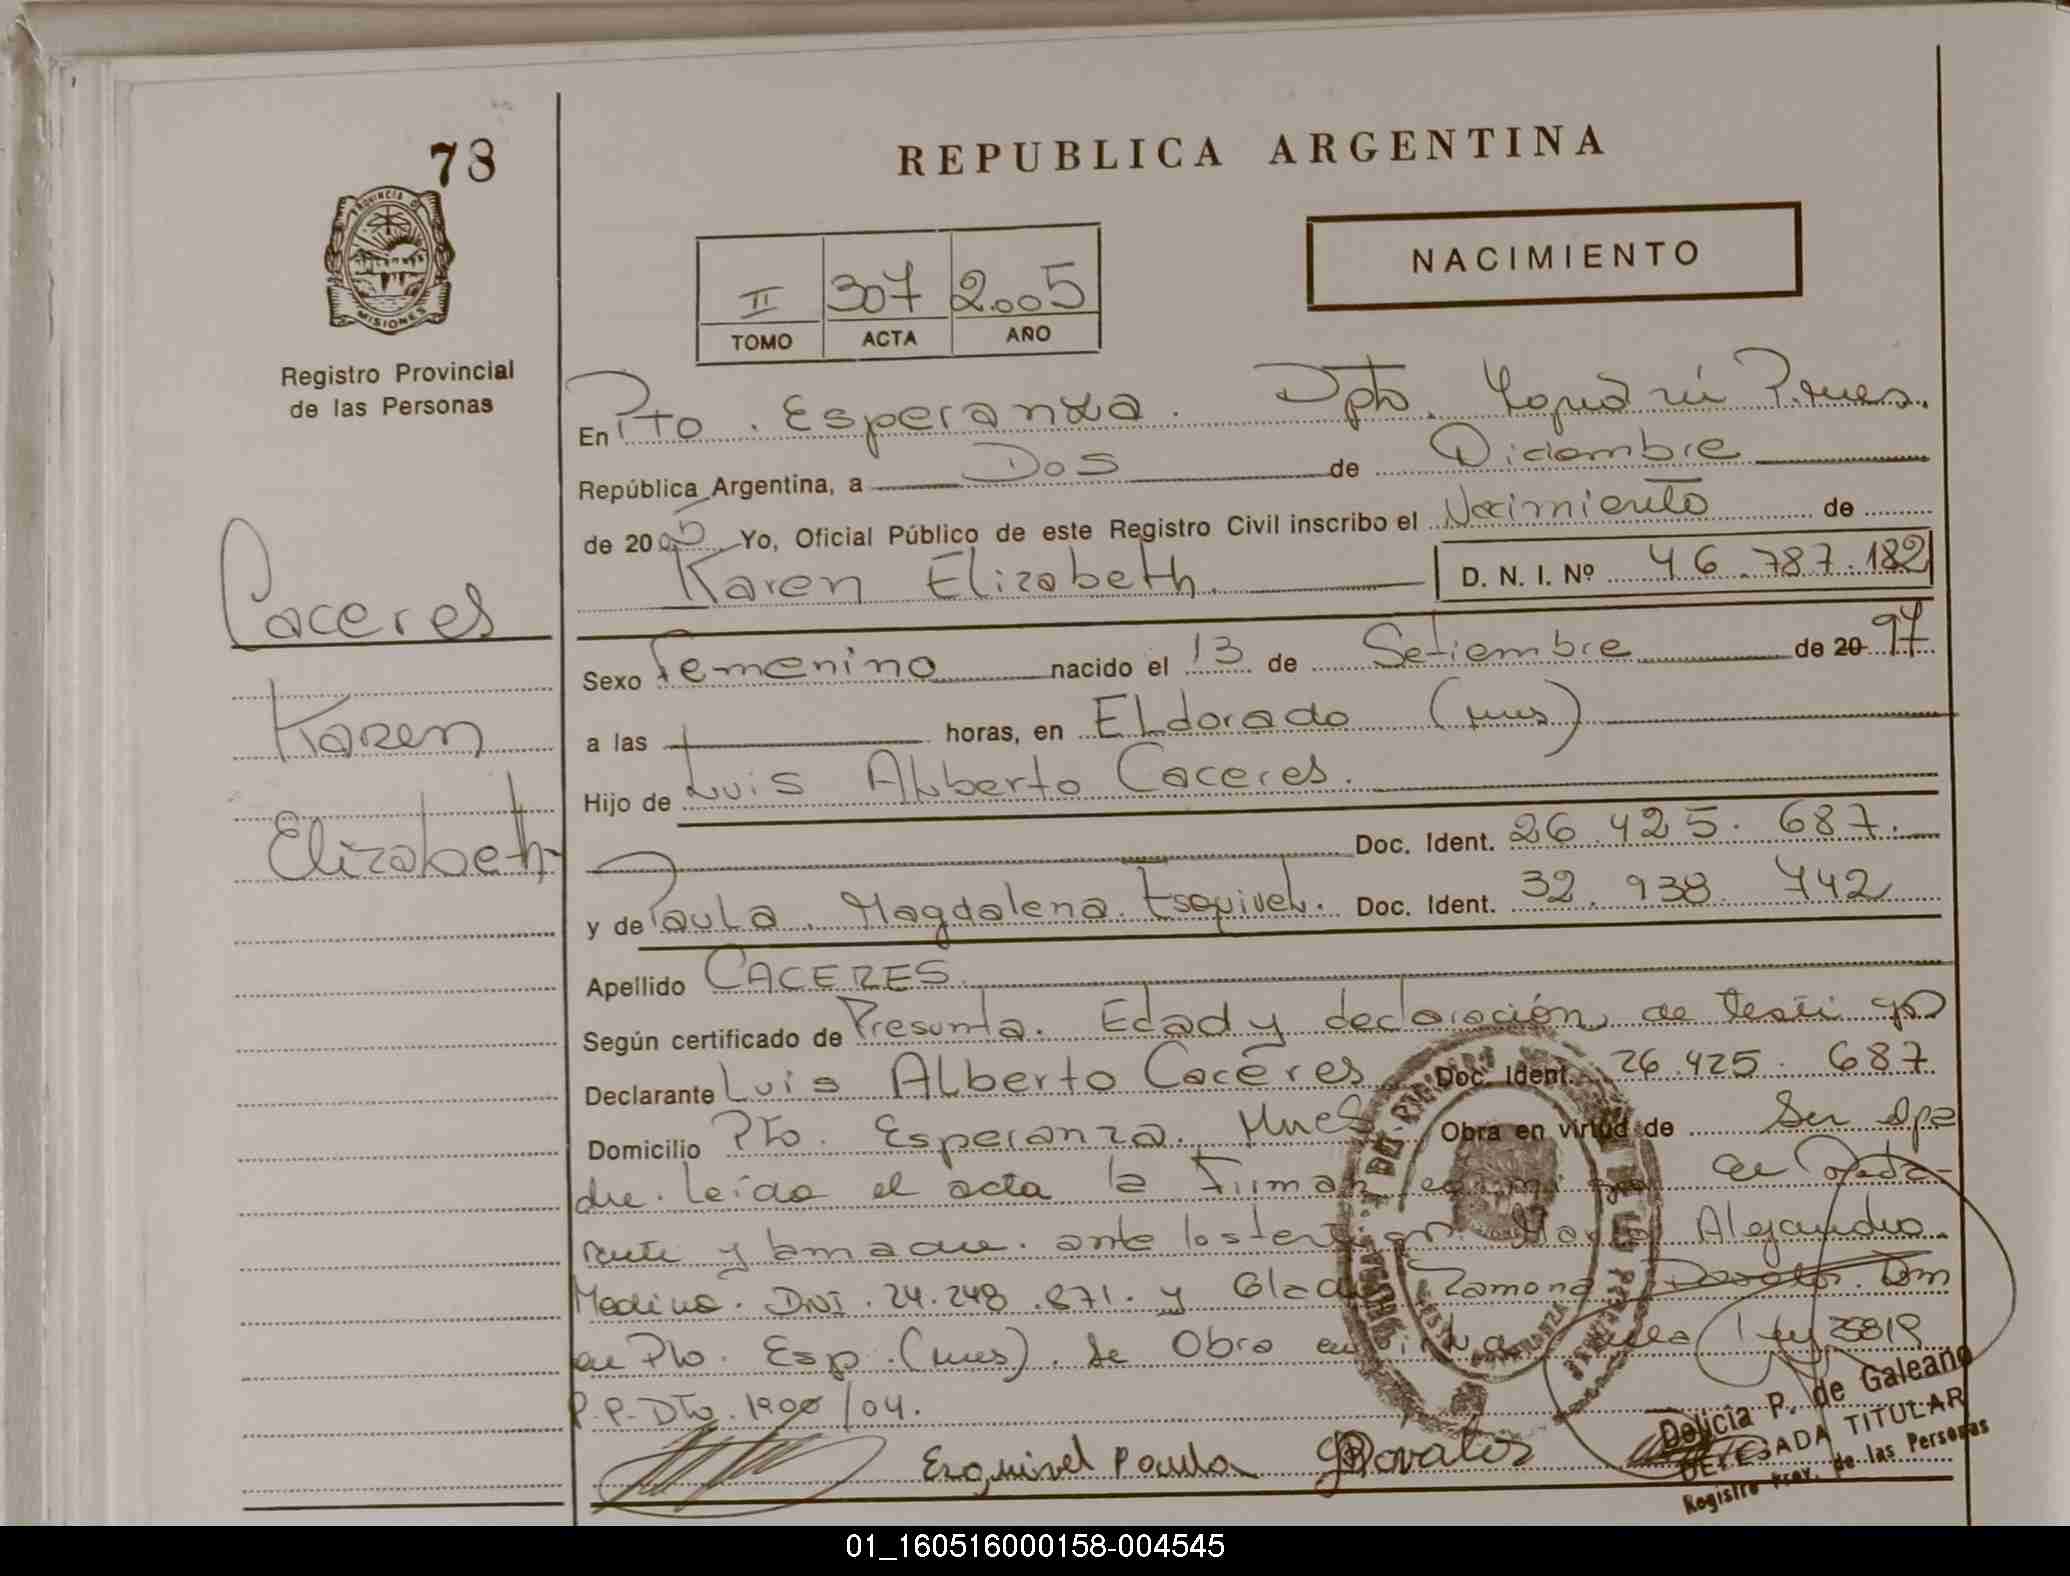 78
REPUBLICA ARGENTINA
PROVINCIA D
MISIONES
Registro Provincial
de las Personas
NACIMIENTO
II 307 2.005
TOMO ACTA AÑO
En Pto. Esperanza. Dpto. Yguazú
República Argentina, a Dos de Diciembre
de 2005 Yo, Oficial Público de este Registro Civil inscribo el Nacimiento de
Karen Elizabeth. D. N. I. Nº 46.787.182
Caceres
Karen
Elizabeth
Sexo Femenino nacido el 13 de Setiembre de 20 97
a las horas, en ELdorado (mnes)
Hijo de Luis Alberto Caceres.
Doc. Ident. 26.425.687.
y de Paula Magdalena Esquivel. Doc. Ident. 32.938.742
Apellido CACERES.
Según certificado de Presunta Edad y declaración de testigos
Declarante Luis Alberto Caceres Doc. Ident. 26.425.687
Domicilio Pto. Esperanza. Mnes Obra en virtud de Ser el pa
dre. Leída el acta la Firman conmigo el decla-
rante y la madre. ante los testigos Alejandro
Medina. DNI. 24.248.871. y Ramona Dom
en Pto. Esp. (mnes). Se Obra en virtud Ley 25819
P.P. Dto. 1900/04.
Esquivel Paula
Delicia P. de Galeano
DELEGADA TITULAR
Registro Prov. de las Personas
01_160516000158-004545